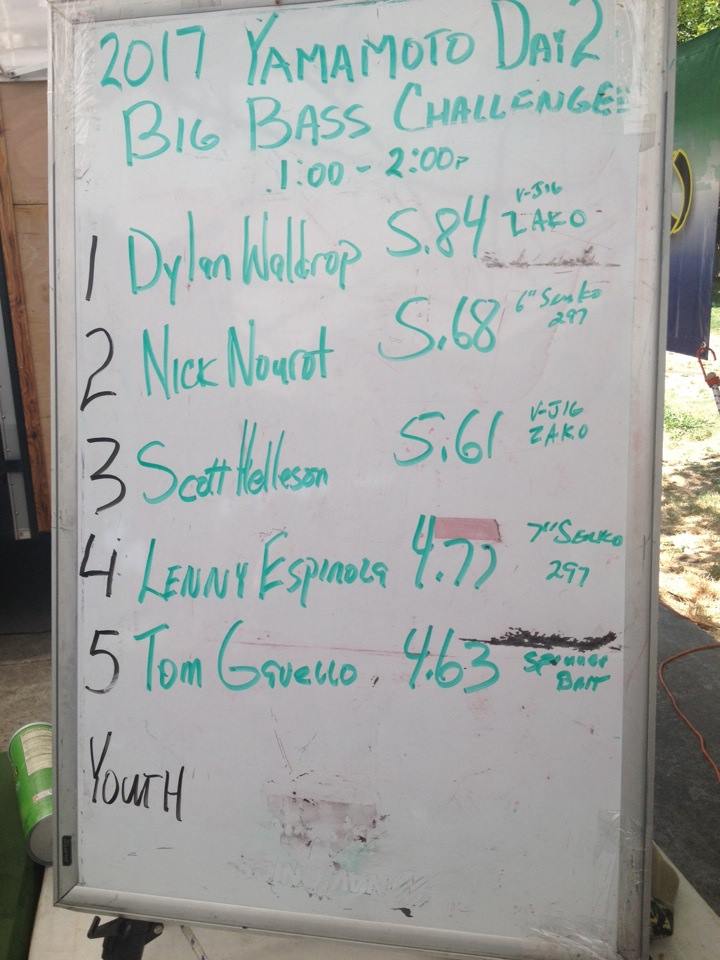 2017 YAMAMOTO DAY 2
BIG BASS CHALLENGE
1:00 - 2:00P
1 Dylan Waldrop 5.84 V-J16 ZAKO
2 Nick Nourot 5.68 6" Senko 297
3 Scott Helleson 5.61 V-J16 ZAKO
4 LENNY ESPINOZA 4.77 7" SENKO 297
5 TOM Gavello 4.63 Spinner BAIT
YOUTH